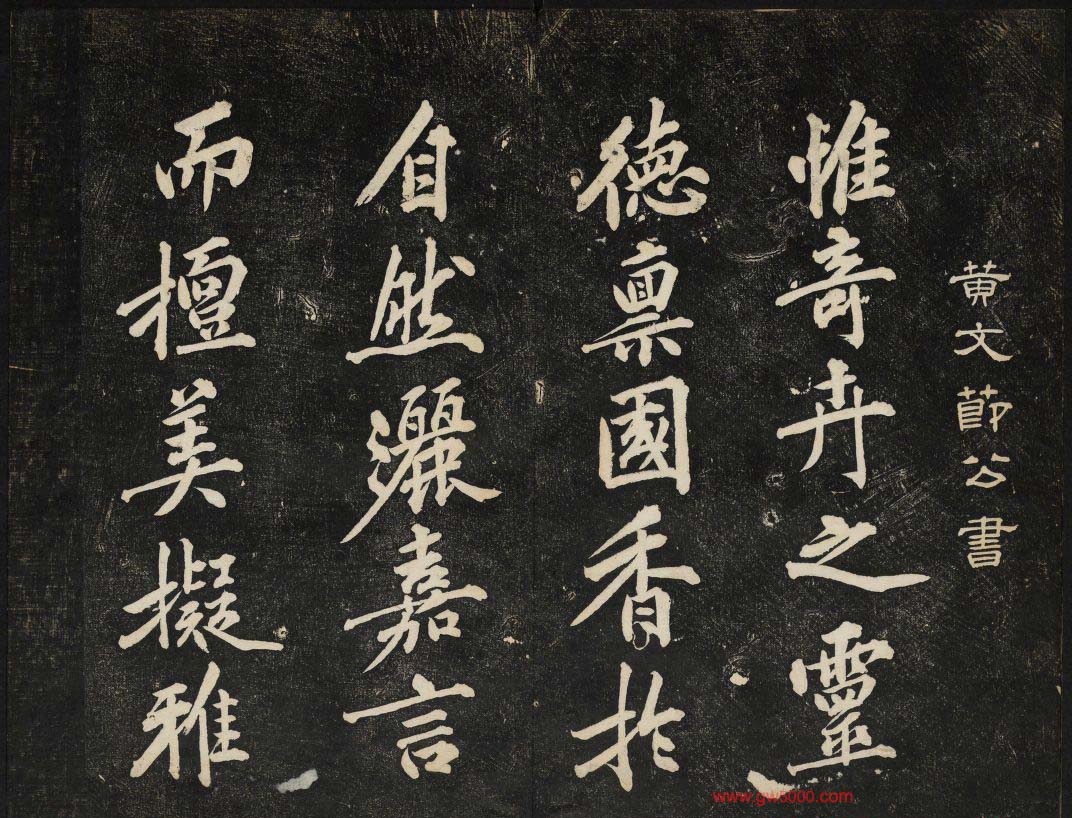 黄文節公書
惟奇卉之靈
德稟國香扵
自然灑嘉言
而擅美擬雅
www.gw5000.com